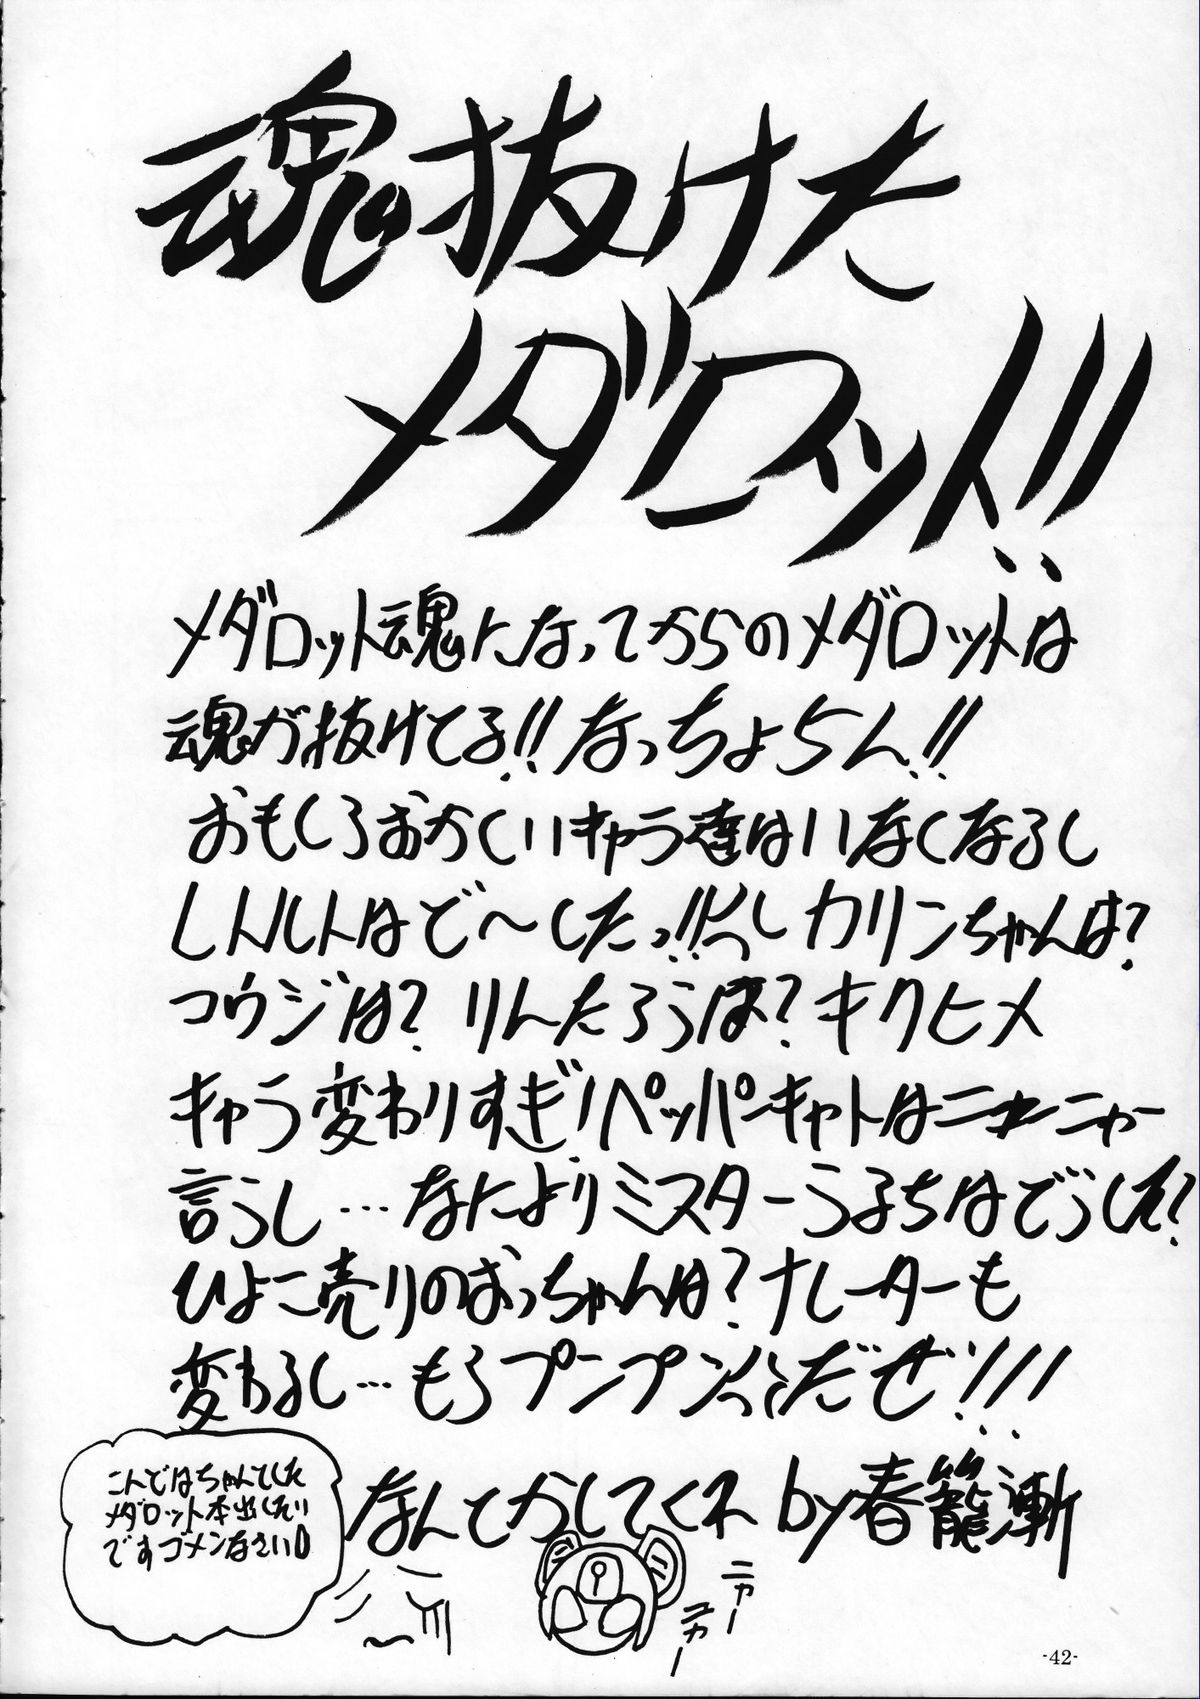 魂抜けた
メダロット!!
メダロット魂になってからのメダロットは
魂が抜けてる!!なっちょらん!!
おもしろおかしいキャラ達はいなくなるし
レトルトはど〜したっ!!つーしカリンちゃんは?
コウジは?りんたろうは?キクヒメ
キャラ変わりすぎ!ペッパーキャットはニャーニャー
言うし…なによりミスターうるちはどうした?
ひよこ売りのおっちゃんは?ナレーターも
変わるし…もうプンプンだぜ!!!
なんとかしてくれ by春籠漸
こんどはちゃんとした
メダロット本出したい
ですゴメンなさい
ニャー
ニャー
-42-